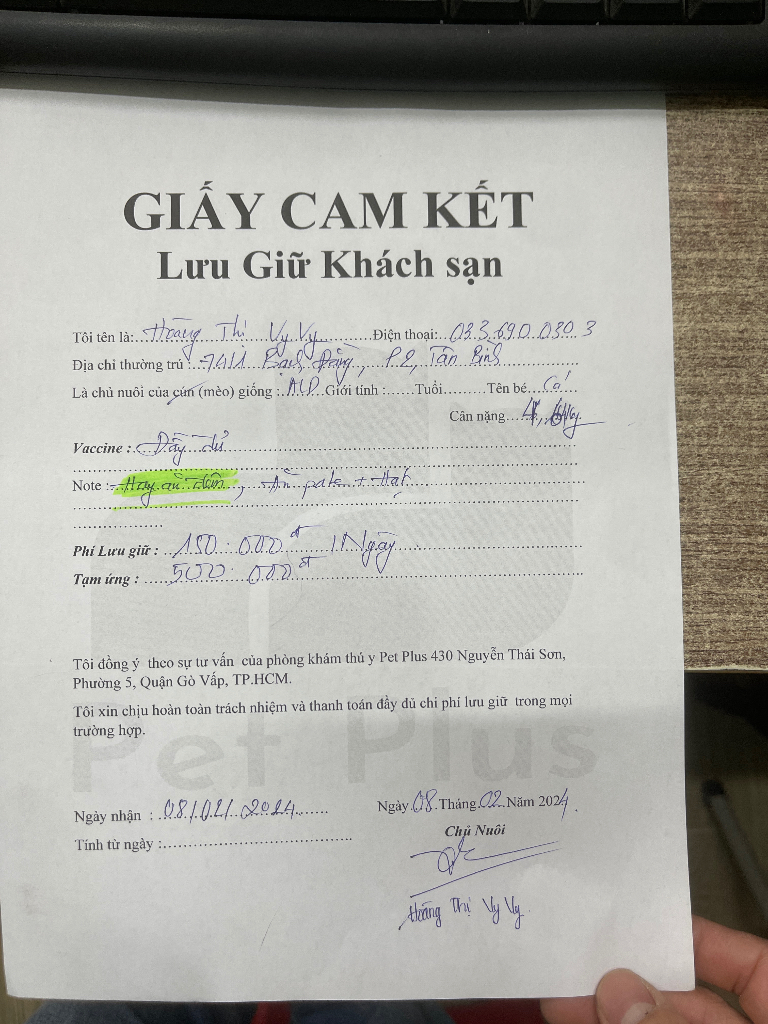 GIẤY CAM KẾT
Lưu Giữ Khách sạn
Tôi tên là: Hoàng Thị Vy Vy Điện thoại: 033.690.0303
Địa chỉ thường trú : 7411 Bạch Đằng, P2, Tân Bình
Là chủ nuôi của cún (mèo) giống : ALD Giới tính :......Tuổi.........Tên bé.... Cá
Cân nặng....4,
Vaccine : Đầy đủ
Note : Hay ăn đêm, Ăn pate + Hạt
Phí Lưu giữ : 150.000đ 1 Ngày
Tạm ứng : 500.000đ
Tôi đồng ý theo sự tư vấn của phòng khám thú y Pet Plus 430 Nguyễn Thái Sơn,
Phường 5, Quận Gò Vấp, TP.HCM.
Tôi xin chịu hoàn toàn trách nhiệm và thanh toán đầy đủ chi phí lưu giữ trong mọi
trường hợp.
Pet Plus
Ngày 08 Tháng 02 Năm 2024
Ngày nhận : 08/02/2024
Tính từ ngày :
Chủ Nuôi
Hoàng Thị Vy Vy